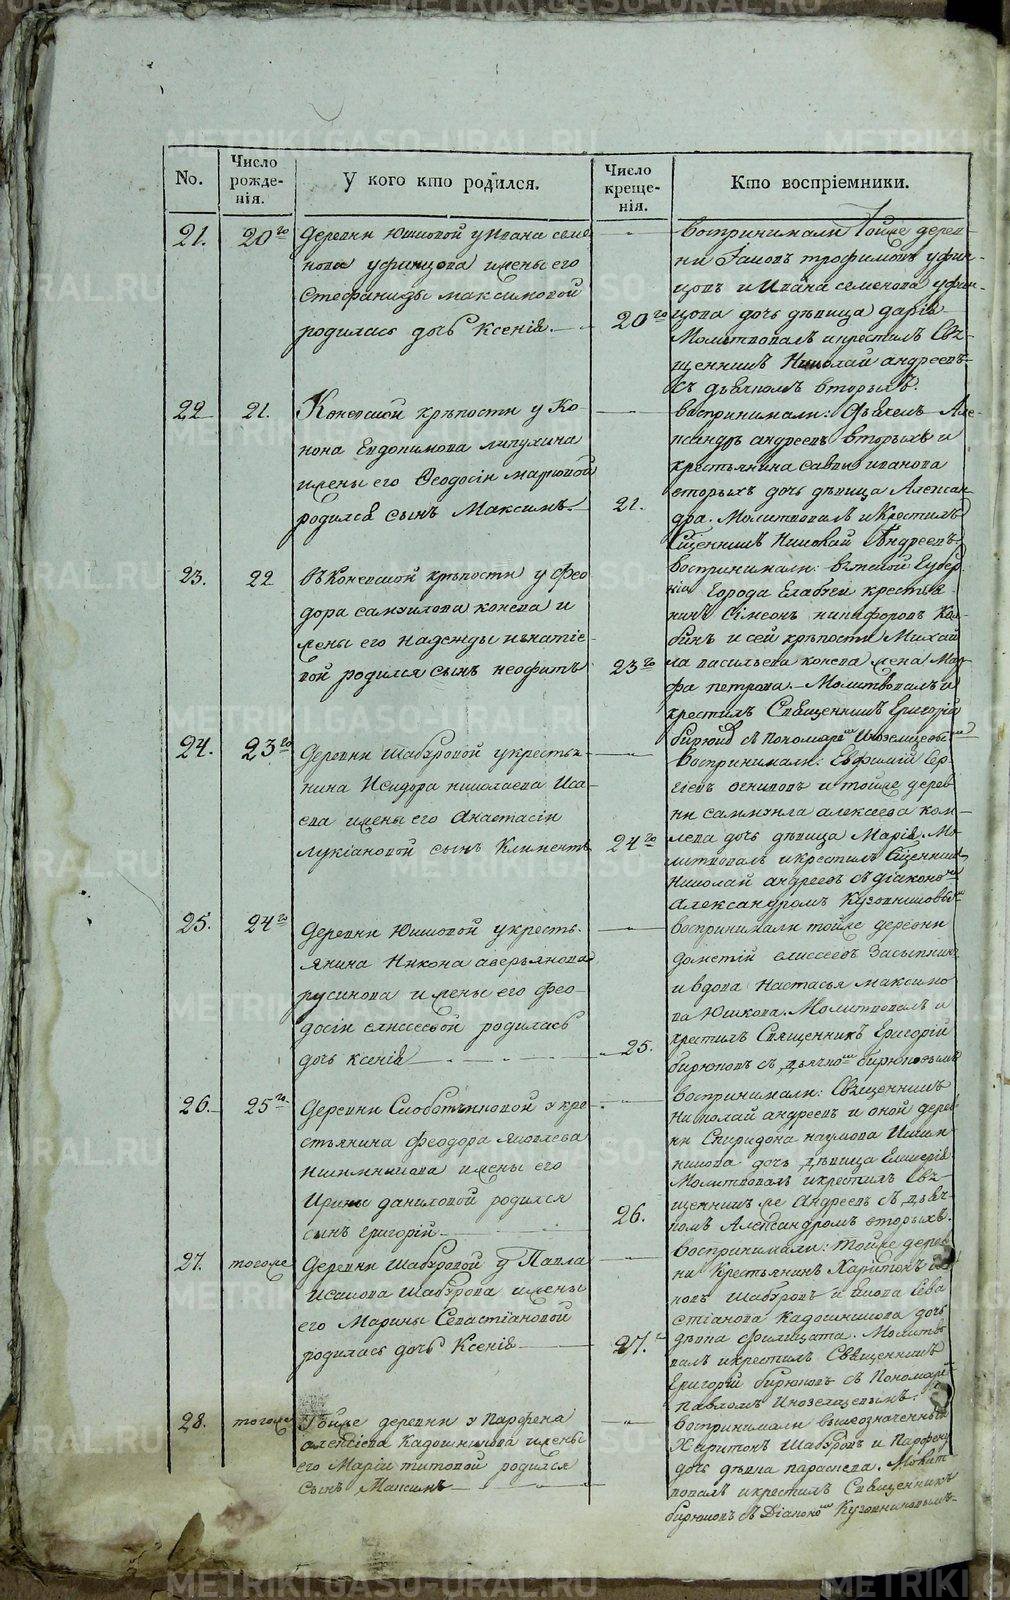 METRIKI.GASO-URAL.RU
No.
Число рожде-
нія.
У кого кто родился.
Число креще-
нія.
Кто воспріемники.
21.
20го
Деревни Юшковой у Ивана Семе
нова Уфинцова и жены его
Стефаниды Максимовой
родилась дочь Ксенія.
20го
воспринимали Тойже дерев-
ни Іаковъ Трофимовъ Уфин-
цовъ и Ивана Семенова Уфин-
цова дочь дѣвица Дарія
Молитвовалъ и крестилъ Свя-
щенникъ Николай Андреевъ
съ дьячкомъ Вторыхъ.
22
21.
Коневской крѣпости у Ко
нона Евдокимова Липухина
и жены его Ѳеодосіи Марковой
родился сынъ Максимъ
21.
воспринимали: Дьячекъ Але-
ксандръ Андреевъ Вторыхъ и
крестьянина Саввы Иванова
Вторыхъ дочь дѣвица Алексан-
дра. Молитвовалъ и Крестилъ
Сщенникъ Николай Андреевъ
23.
22
въ Коневской крѣпости у Фео
дора Самуилова Конева и
жены его Надежды Игнатіе-
вой родился сынъ Неофитъ
23го
воспринимали: Вятской Губер-
ніи Города Елабуги крестья-
нинъ Сімеонъ Никифоровъ Кол-
бинъ и сей крѣпости Михай
ла Васильева Конева жена Мар-
фа Петрова. Молитвовалъ и
крестилъ Священникъ Григорій
Бирюковъ съ Пономаремъ Иноземцевымъ
24.
23го
Деревни Шабуровой у крестья-
нина Исидора Николаева Иса-
ева и жены его Анастасіи
Лукіановой сынъ Климентъ
24го
воспринимали: Евфимій Сер-
гіевъ и тойже дерев-
ни Саммуила Алексеева Ком-
лева дочь дѣвица Марія. Мо-
литвовалъ и крестилъ Сщенникъ
Николай Андреевъ съ діакономъ
Александромъ Кузовниковымъ
25.
24го
Деревни Юшковой у кресть-
янина Никона Аверьянова
Русинова и жены его Фео-
досіи Елисеевой родилась
дочь Ксенія
25.
воспринимали тойже деревни
Дометій Елисеевъ Засыпкинъ
и вдова Настасья Максимо
ва Юшкова. Молитвовалъ и
крестилъ Священникъ Григорій
Бирюковъ съ дьячкомъ Бирюковымъ
26.
25го
Деревни Слободчиковой у кре-
стьянина Феодора Яковлева
и жены его
Ирины Даниловой родился
сынъ Григорій
26.
воспринимали: Священникъ
Николай Андреевъ и оной дерев
ни Спиридона Наумова
дочь дѣвица Гликерія
Молитвовалъ и крестилъ Свя-
щенникъ же Андреевъ съ дьяч-
комъ Александромъ Вторыхъ.
27.
тогоже
Деревни Шабуровой у Павла
Исакова Шабурова и жены
его Марины Севастіановой
родилась дочь Ксенія
27.
воспринимали: тойже дерев
ни Крестьянинъ Харитонъ
Шабуровъ и Сева
стіанова Кадошникова дочь
дѣвка Филицата. Молитво
валъ и крестилъ Священникъ
Григорій Бирюковъ съ Пономаремъ
Павломъ Иноземцевымъ.
28.
тогоже
Тойже деревни у Парфена
Алексіева Кадошникова и жены
его Маріи Титовой родился
сынъ Максимъ
воспринимали вышеозначенный
Харитонъ Шабуровъ и
дочь дѣвка Параскева. Молит
вовалъ и крестилъ Священникъ
Бирюковъ съ Діакономъ Кузовниковымъ